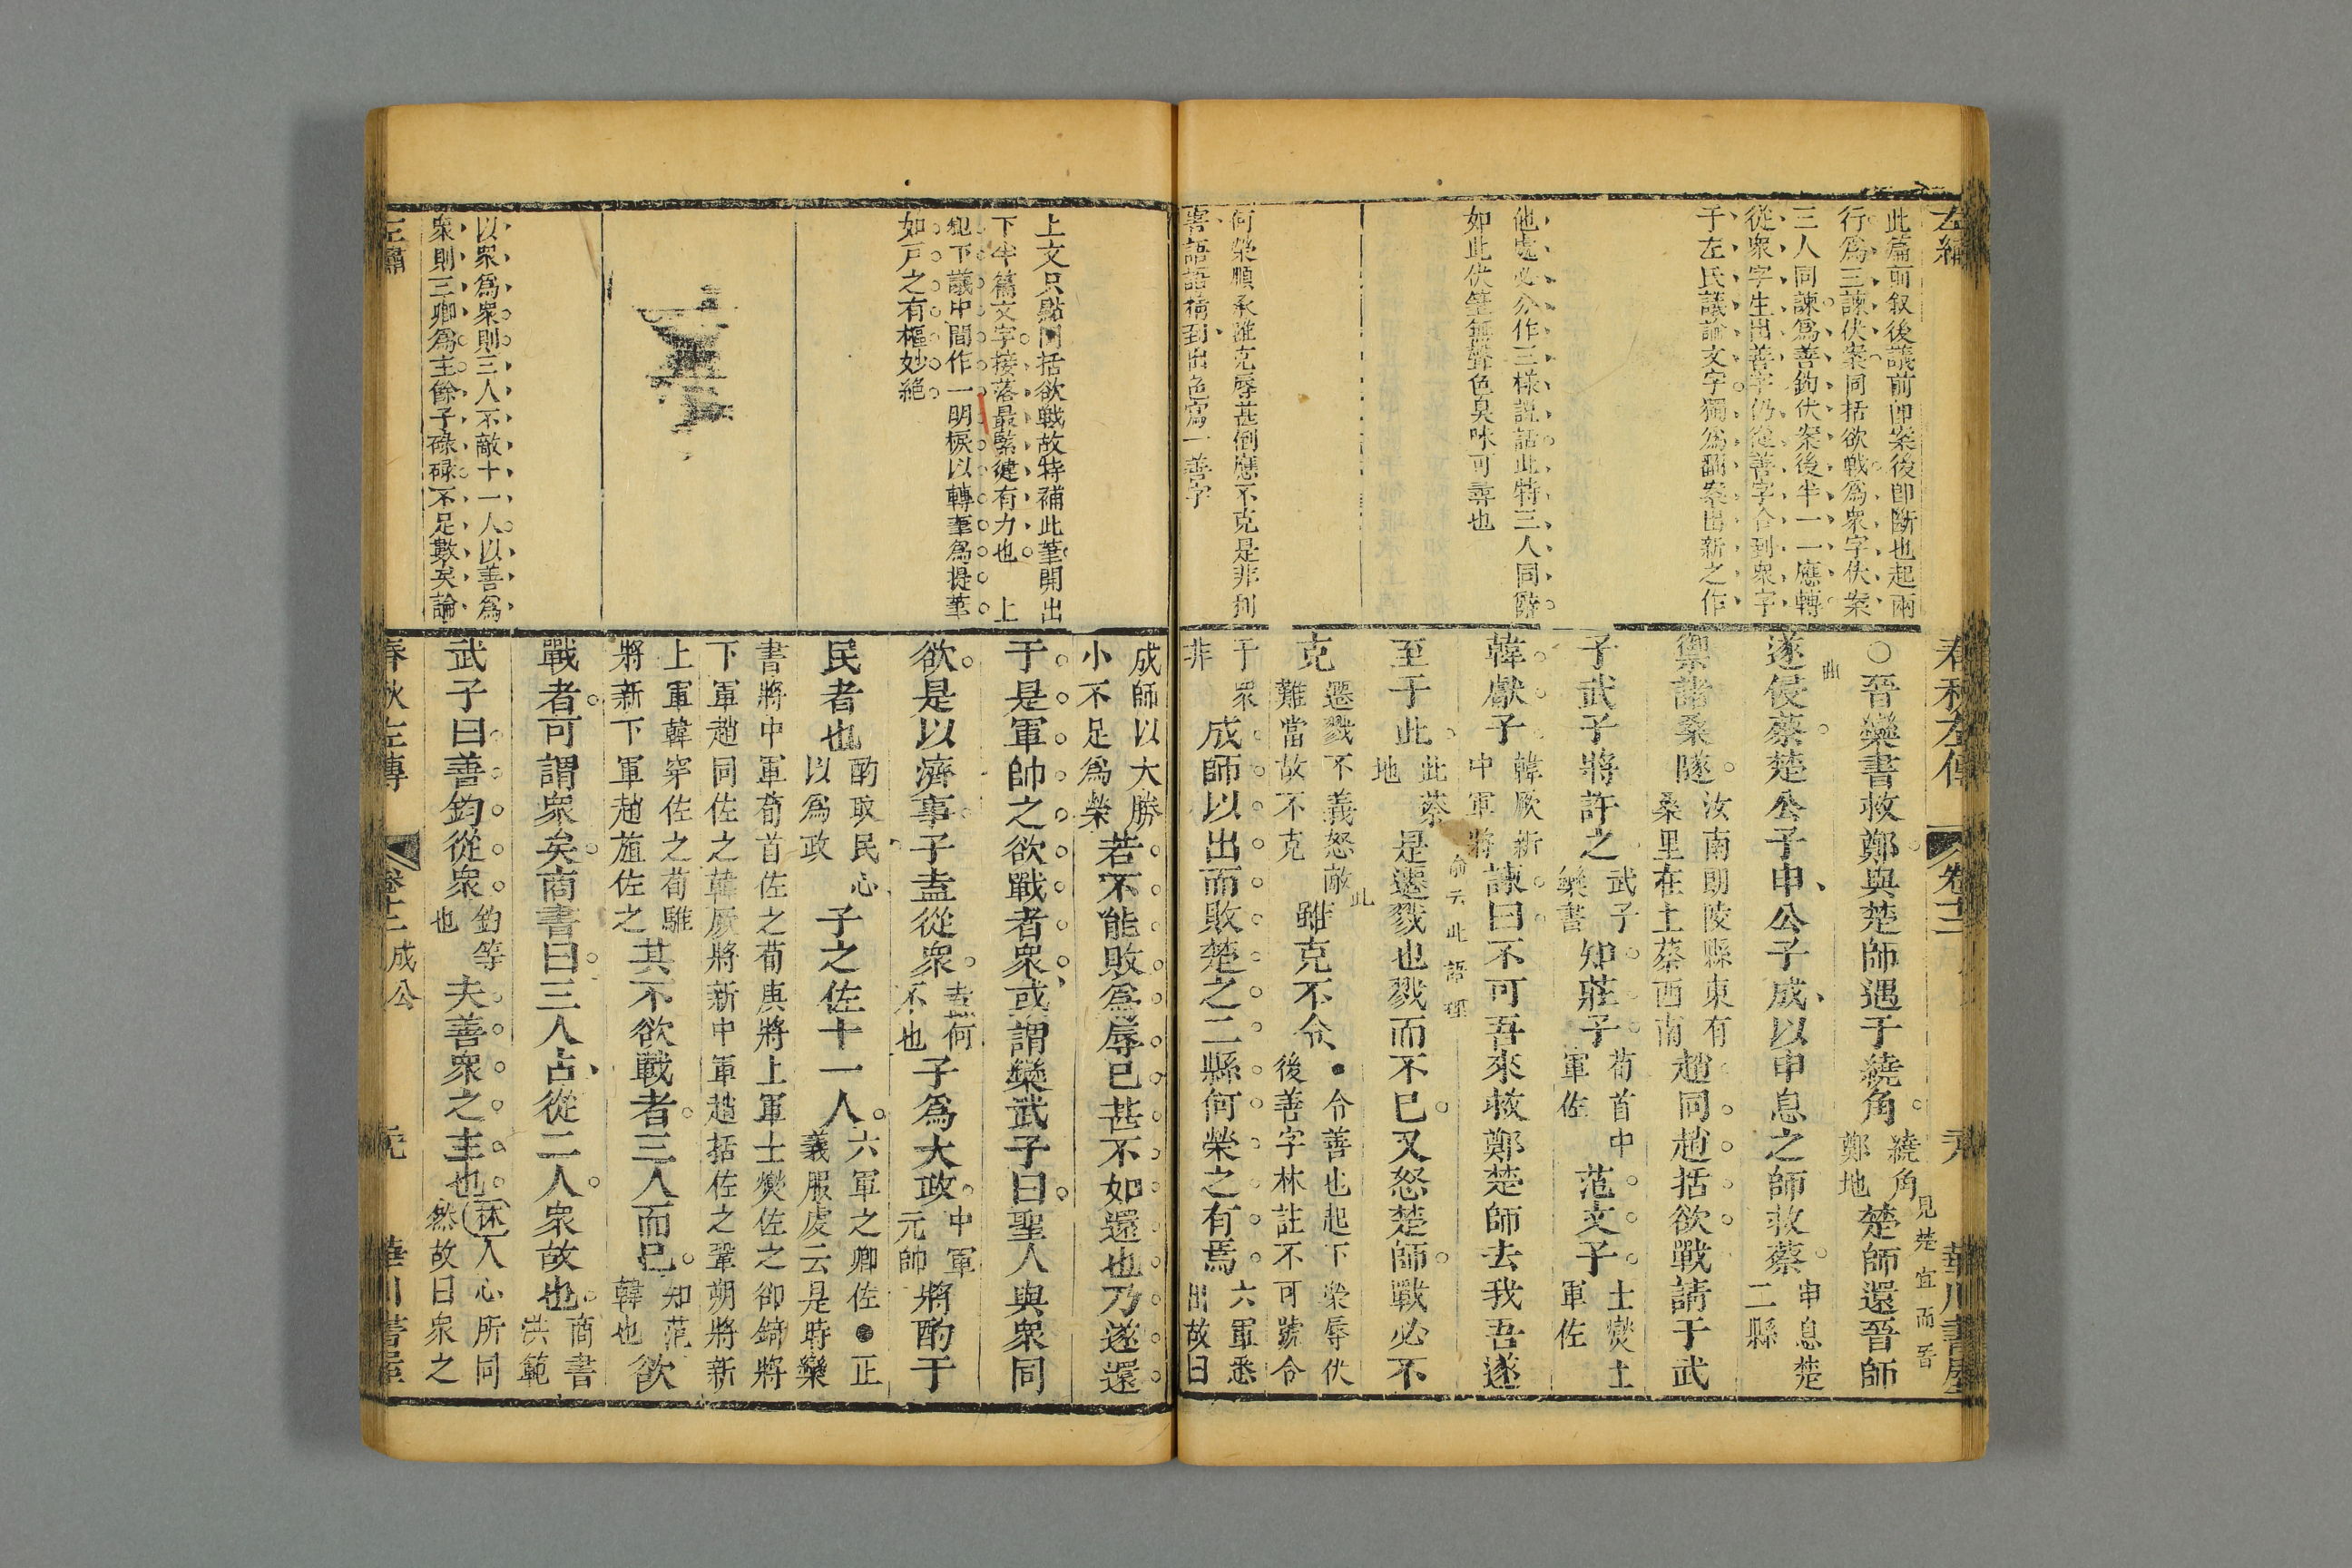 左繡
春秋左傳
卷十二
華川書屋
此篇前叙後議前卽案後卽斷也起兩
行爲三諫伏案同括欲戰爲衆字伏案
三人同諫爲善鈞伏案後半一一應轉
從衆字生出善字仍從善字合到衆字
子左氏議論文字獨爲翻案出新之作
他處必分作三樣説話此特三人同辭
如此伏筆無聲色臭味可尋也
何榮順承雖克辱甚倒應不克是非利
害語語構到出色寫一善字
○晉欒書救鄭與楚師遇于繞角繞角鄭地楚師還晉師
見楚宜而晉
遂侵蔡楚公子申公子成以申息之師救蔡申息楚二縣
禦諸桑隧汝南朗陵縣東有桑里在上蔡西南趙同趙括欲戰請于武
子武子將許之武子欒書知莊子荀首中軍佐范文子士燮上軍佐
韓獻子韓厥新中軍將諫曰不可吾來救鄭楚師去我吾遂
俞云此語
至于此此蔡地是遷戮也戮而不已又怒楚師戰必不
克遷戮不義怒敵難當故不克雖克不令●令善也起下榮辱伏後善字林註不可號令
于眾非成師以出而敗楚之二縣何榮之有焉六軍悉出故曰
成師以大勝小不足爲榮若不能敗爲辱已甚不如還也乃遂還
于是軍帥之欲戰者衆或謂欒武子曰聖人與衆同
欲是以濟事子盍從衆盍何不也子爲大政中軍元帥將酌于
民者也酌取民心以爲政子之佐十一人六軍之卿佐●正義服虔云是時欒
書將中軍荀首佐之荀庚將上軍士燮佐之郤錡將下軍趙同佐之韓厥將新中軍趙括佐之鞏朔將新
上軍韓穿佐之荀騅將新下軍趙旃佐之其不欲戰者三人而已知范韓也欲
戰者可謂衆矣商書曰三人占從二人衆故也商書洪範
武子曰善鈞從衆鈞等也夫善衆之主也林人心所同然故曰衆之
上文只點同括欲戰故特補此筆開出
下半篇文字接落最緊健有力也　上
叙下議中間作一明橛以轉筆爲提筆
如戸之有樞妙絶
以衆爲衆則三人不敵十一人以善爲
衆則三卿爲主餘子碌碌不足數矣論
左繡
春秋左傳
卷十二成公
華川書屋